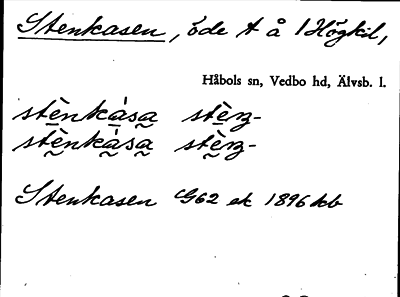 Stenkasen, öde t å 1 Högkil,
Håbols sn, Vedbo hd, Älvsb. l.
stènkàsa stèrz-
stènkàsa stèrz-
Stenkasen G62 ek 1896 kb